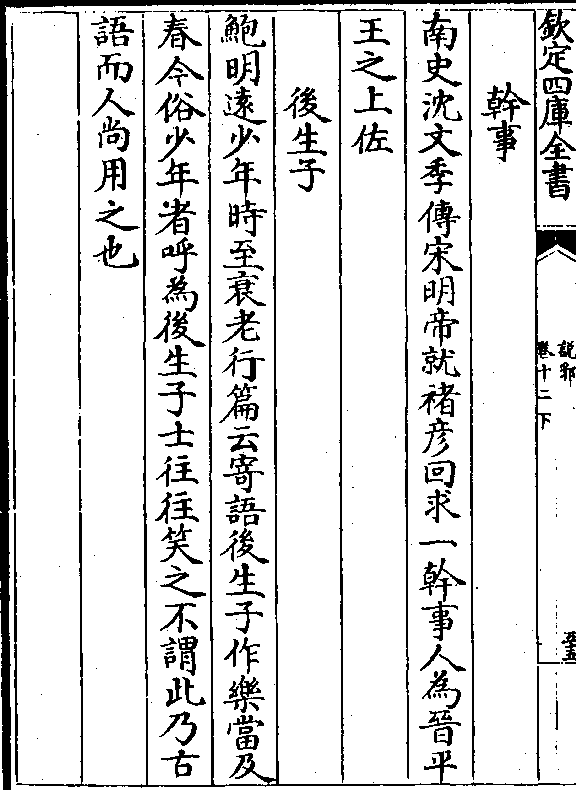 欽定四庫全書
說郛
卷十二下
幹事
南史沈文季傳宋明帝就褚彦回求一幹事人為晉平
王之上佐
後生子
鮑明遠少年時至衰老行篇云寄語後生子作樂當及
春今俗少年者呼為後生子士往往笑之不謂此乃古
語而人尚用之也